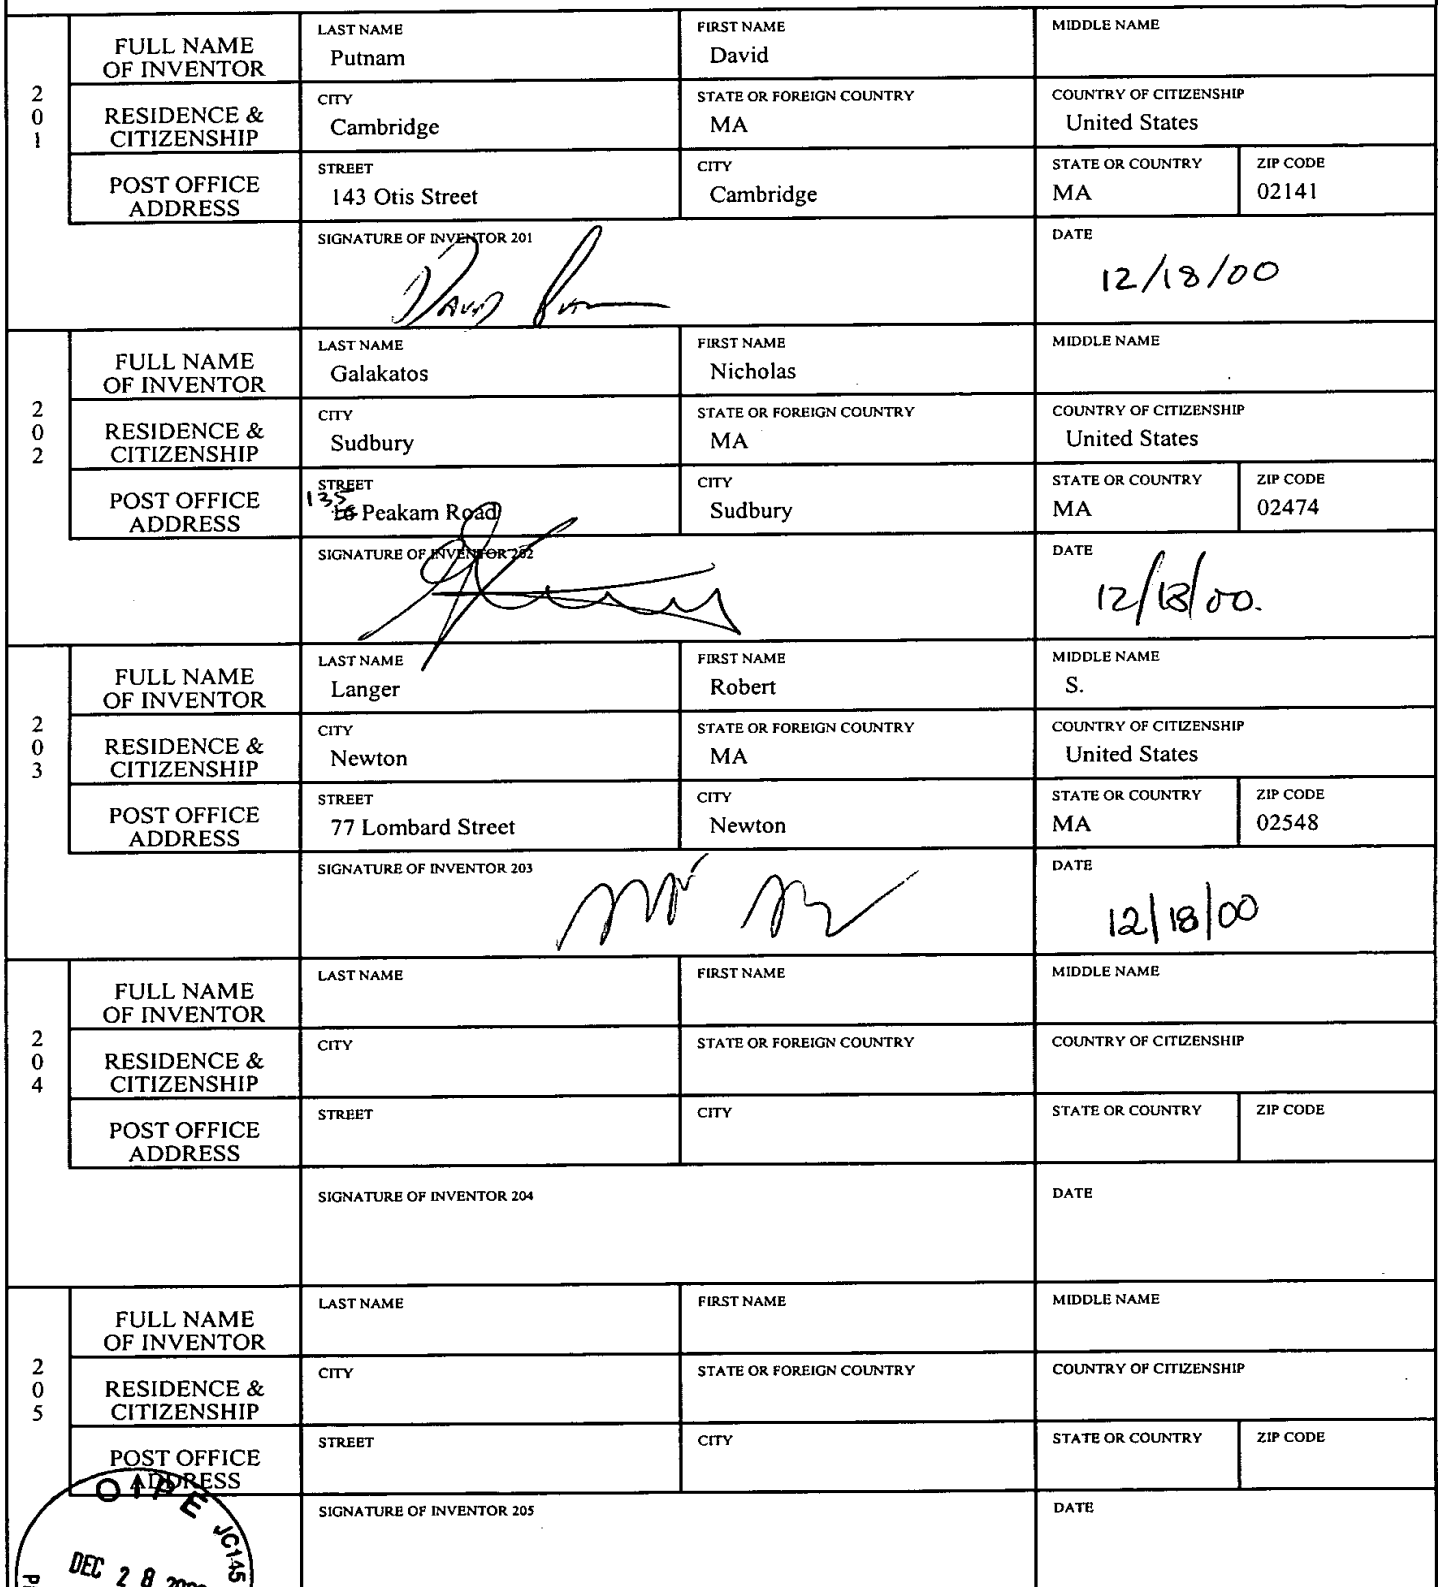 201
FULL NAME OF INVENTOR
LAST NAME
Putnam
FIRST NAME
David
MIDDLE NAME
RESIDENCE & CITIZENSHIP
CITY
Cambridge
STATE OR FOREIGN COUNTRY
MA
COUNTRY OF CITIZENSHIP
United States
POST OFFICE ADDRESS
STREET
143 Otis Street
CITY
Cambridge
STATE OR COUNTRY
MA
ZIP CODE
02141
SIGNATURE OF INVENTOR 201
David
DATE
12/18/00
202
FULL NAME OF INVENTOR
LAST NAME
Galakatos
FIRST NAME
Nicholas
MIDDLE NAME
RESIDENCE & CITIZENSHIP
CITY
Sudbury
STATE OR FOREIGN COUNTRY
MA
COUNTRY OF CITIZENSHIP
United States
POST OFFICE ADDRESS
STREET
135
Peakam Road
CITY
Sudbury
STATE OR COUNTRY
MA
ZIP CODE
02474
SIGNATURE OF INVENTOR 202
DATE
12/18/00.
203
FULL NAME OF INVENTOR
LAST NAME
Langer
FIRST NAME
Robert
MIDDLE NAME
S.
RESIDENCE & CITIZENSHIP
CITY
Newton
STATE OR FOREIGN COUNTRY
MA
COUNTRY OF CITIZENSHIP
United States
POST OFFICE ADDRESS
STREET
77 Lombard Street
CITY
Newton
STATE OR COUNTRY
MA
ZIP CODE
02548
SIGNATURE OF INVENTOR 203
DATE
12/18/00
204
FULL NAME OF INVENTOR
LAST NAME
FIRST NAME
MIDDLE NAME
RESIDENCE & CITIZENSHIP
CITY
STATE OR FOREIGN COUNTRY
COUNTRY OF CITIZENSHIP
POST OFFICE ADDRESS
STREET
CITY
STATE OR COUNTRY
ZIP CODE
SIGNATURE OF INVENTOR 204
DATE
205
FULL NAME OF INVENTOR
LAST NAME
FIRST NAME
MIDDLE NAME
RESIDENCE & CITIZENSHIP
CITY
STATE OR FOREIGN COUNTRY
COUNTRY OF CITIZENSHIP
POST OFFICE ADDRESS
STREET
CITY
STATE OR COUNTRY
ZIP CODE
SIGNATURE OF INVENTOR 205
DATE
OIPE JC145
DEC 28